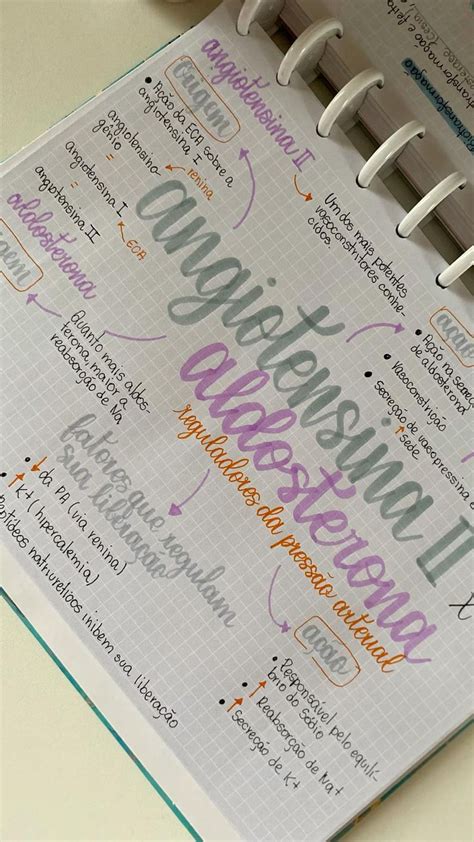 angiotensina II
origem
• Ação da ECA sobre a
angiotensina I
angiotensino-
gênio
= renina
Angiotensina I
= ECA
angiotensina II
Um dos mais potentes
vasoconstritores conhe-
cidos.
ação
• Ação na secre
de aldosterona
• Vasoconstrição
• Secreção de vasopressina
↑ sede
angiotensina II
aldosterona
reguladores da pressão arterial
aldosterona
Quanto mais aldos-
terona, maior a
reabsorção de Na
fatores que regulam
sua liberação
• ↓ da PA (via renina)
• ↑ K+ (hipercalemia)
Peptídeos natriuréticos inibem sua liberação
ação
• Responsável pelo equilí-
brio do sódio
• ↑ Reabsorção de Na+
• ↑ Secreção de K+